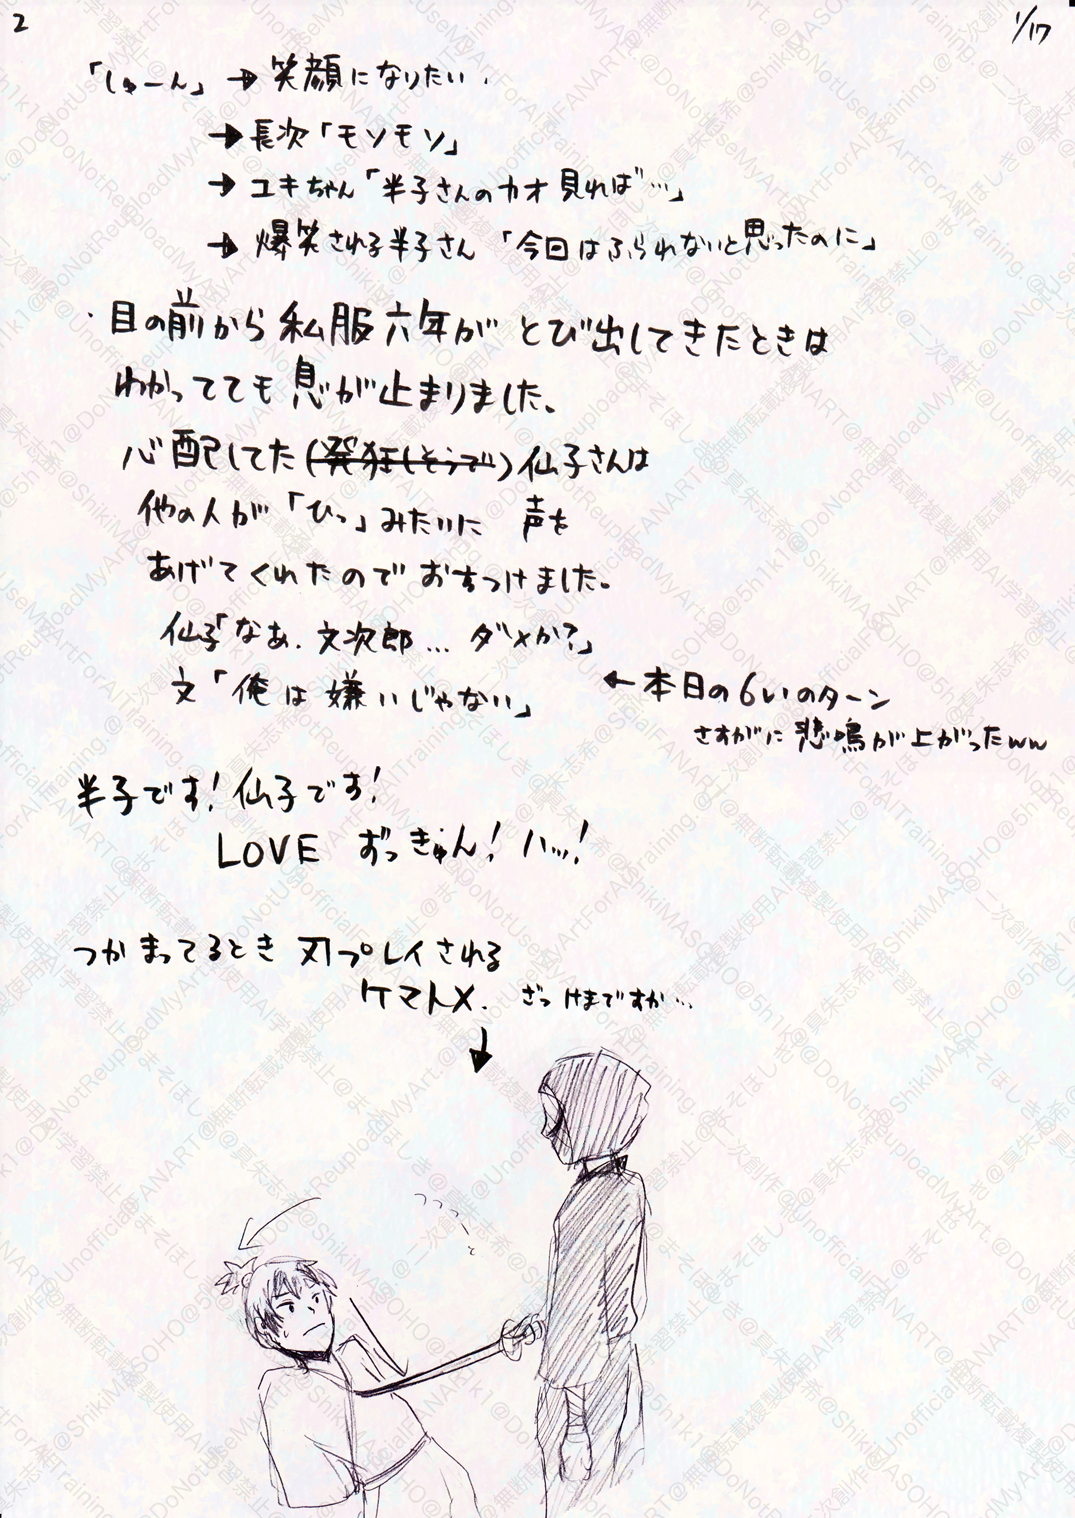 2
1/17
「しゅーん」→笑顔になりたい.
→長次「モソモソ」
→ユキちゃん「半子さんのカオ見れば…」
→爆笑される半子さん「今回はふられないと思ったのに」
・目の前から私服六年がとび出してきたときは
わかってても息が止まりました。
心配してた(発狂しそうで)仙子さんは
他の人が「ひっ」みたいに 声を
あげてくれたのでおちつけました。
仙子「なあ.文次郎… ダメか?」
文「俺は嫌いじゃない」
←本日の6いのターン
さすがに悲鳴が上がったww
半子です!仙子です!
LOVE ずっきゅん!ハッ!
つかまってるとき 刃プレイされる
ケマトメ. ざっけまですか…